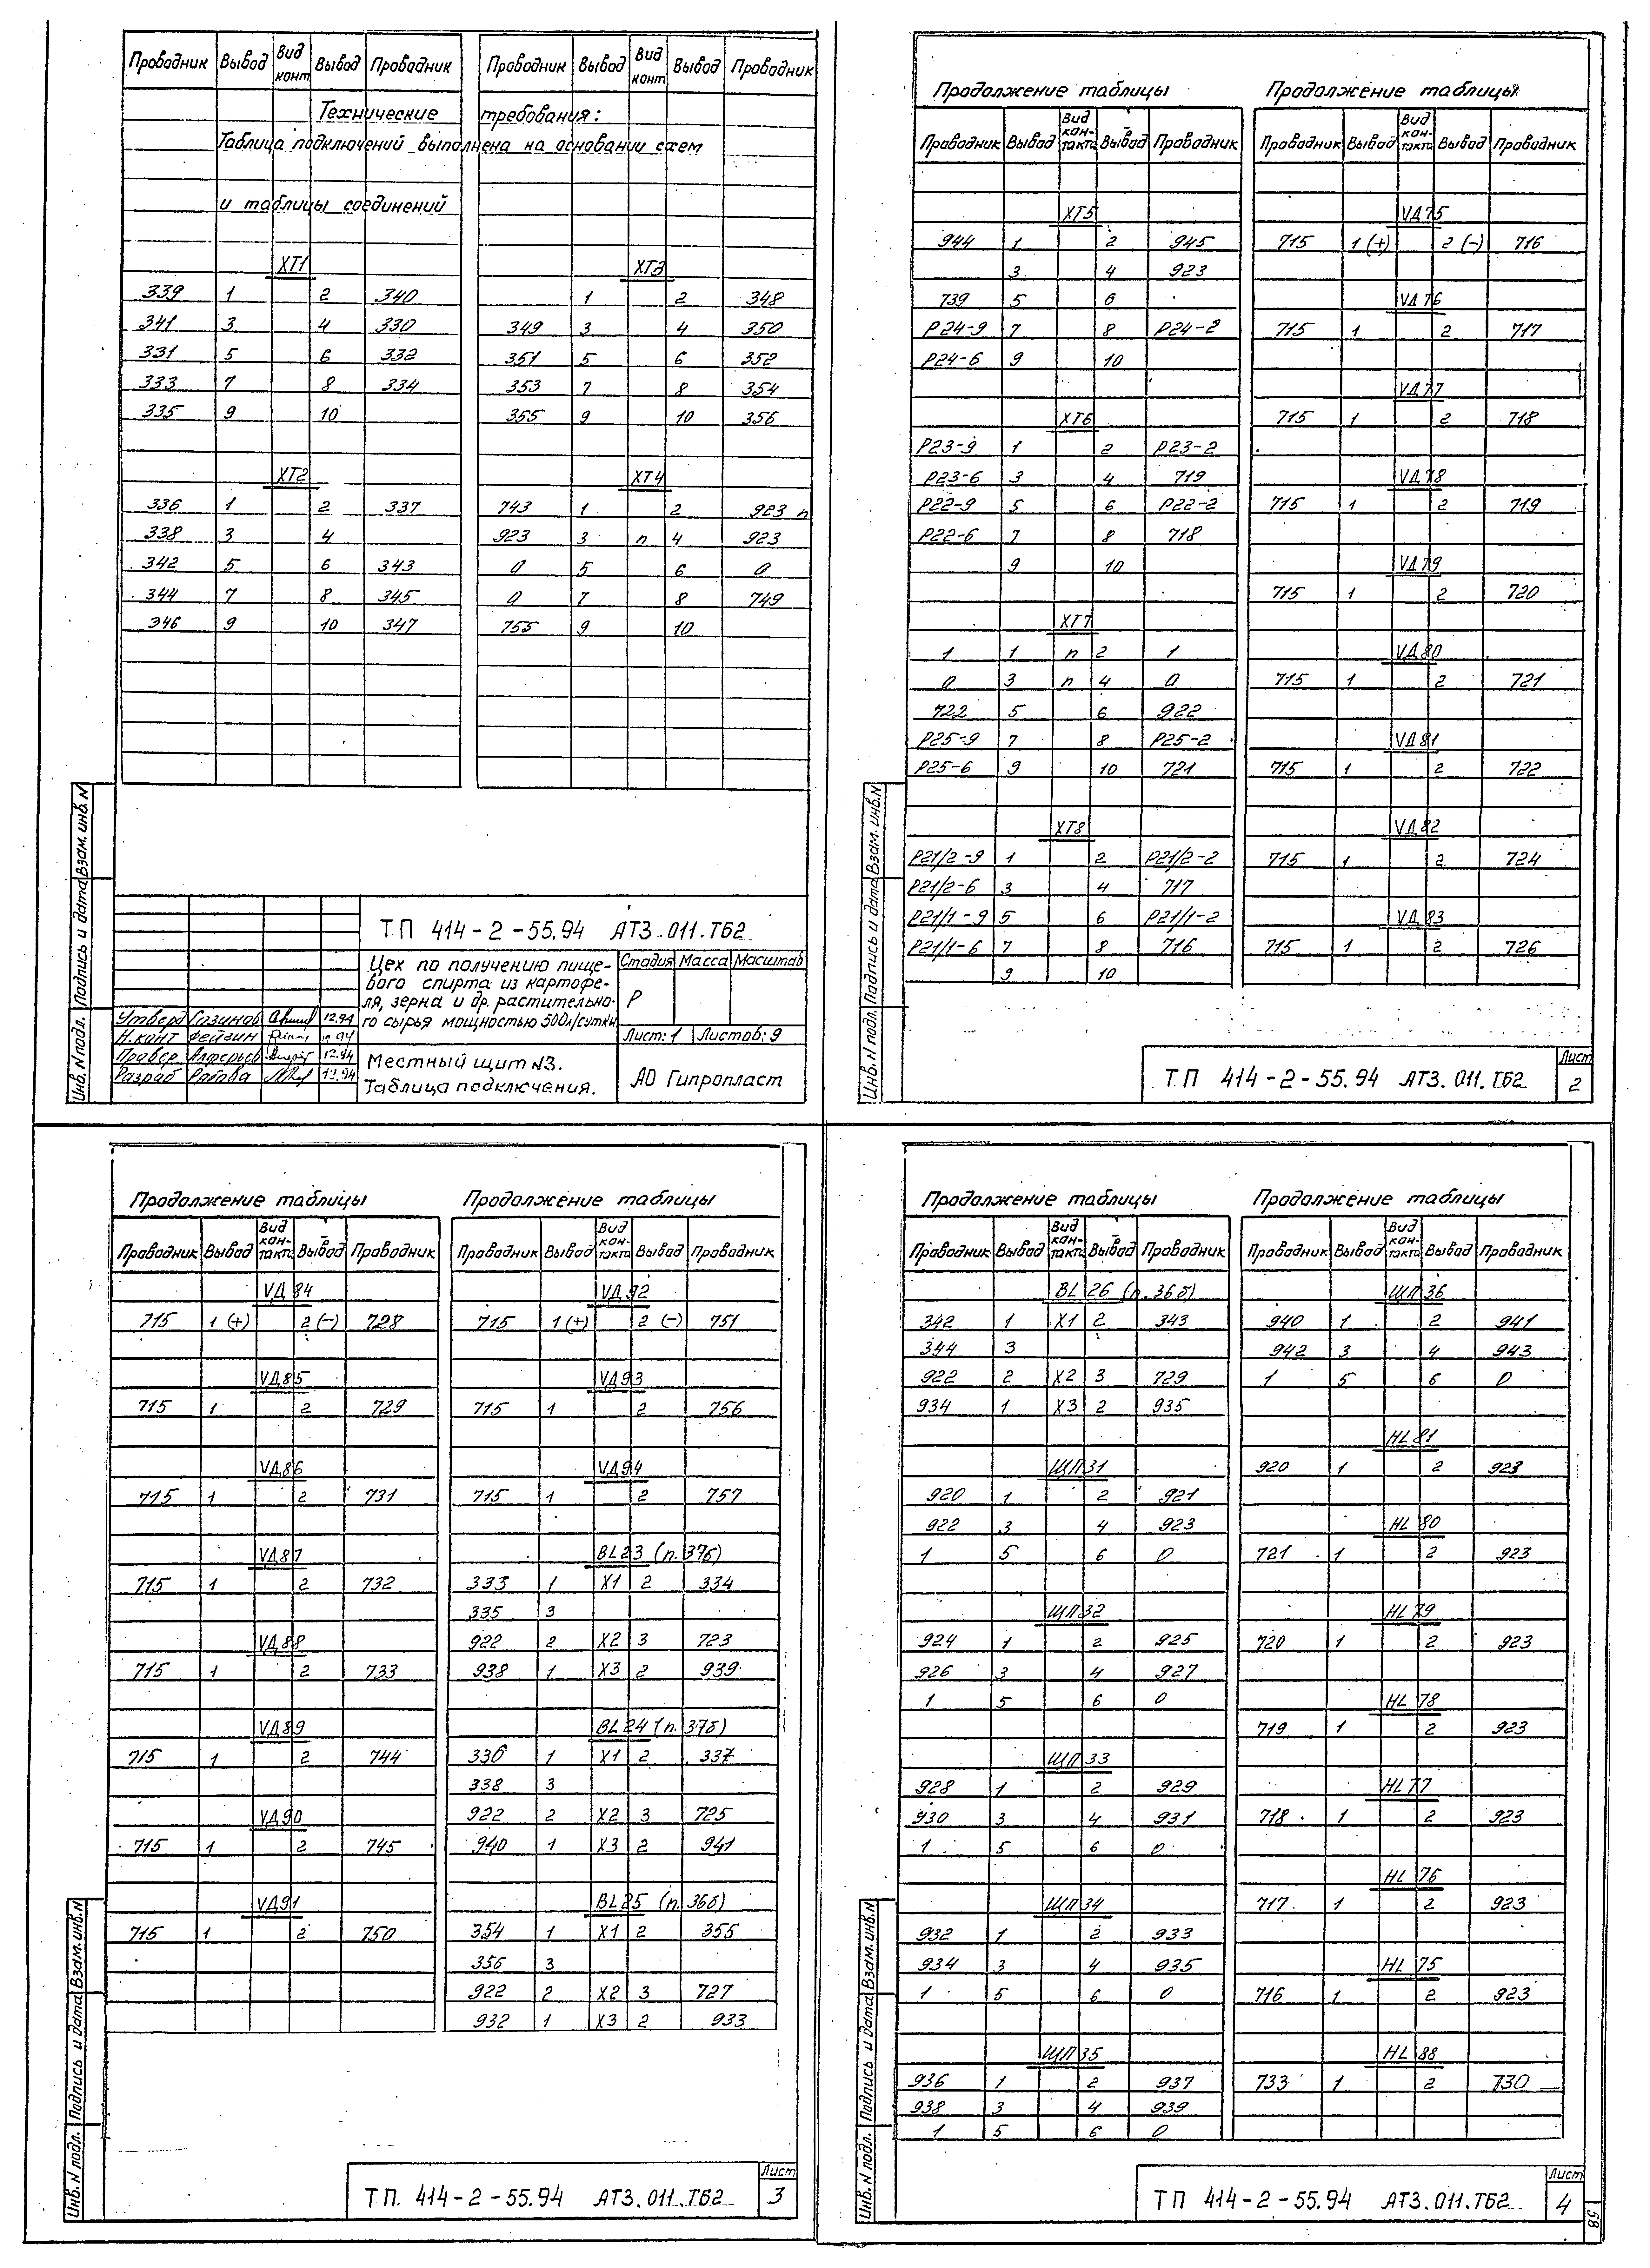 Проводник Вывод Вид конт Вывод Проводник
Технические требования:
Таблица подключений выполнена на основании схем
и таблицы соединений
XT1
339 1 2 340
341 3 4 330
331 5 6 332
333 7 8 334
335 9 10
XT2
336 1 2 337
338 3 4
342 5 6 343
344 7 8 345
346 9 10 347
Проводник Вывод Вид конт. Вывод Проводник
XT3
1 2 348
349 3 4 350
351 5 6 352
353 7 8 354
355 9 10 356
XT4
743 1 2 923 п
923 3 п 4 923
0 5 6 0
0 7 8 749
755 9 10
Инв. N подл. Подпись и дата Взам. инв. N
ТП 414-2-55.94 АТ3.011.ТБ2
Цех по получению пище-
вого спирта из картофе-
ля, зерна и др. растительно-
го сырья мощностью 500л/сутки
Стадия Масса Масштаб
Р
Лист: 1 Листов: 9
Утверд 12.94
Н.конт Фейгин
Провер 12.94
Разраб 12.94
Местный щит N3.
Таблица подключения.
АО Гипропласт
Продолжение таблицы
Проводник Вывод Вид кон-такта Вывод Проводник
XT5
944 1 2 945
3 4 923
739 5 6
P24-9 7 8 P24-2
P24-6 9 10
XT6
P23-9 1 2 P23-2
P23-6 3 4 719
P22-9 5 6 P22-2
P22-6 7 8 718
9 10
XT7
1 1 п 2 1
0 3 п 4 0
722 5 6 922
P25-9 7 8 P25-2
P25-6 9 10 721
XT8
P21/2-9 1 2 P21/2-2
P21/2-6 3 4 717
P21/1-9 5 6 P21/1-2
P21/1-6 7 8 716
9 10
Продолжение таблицы
Проводник Вывод Вид кон-такта Вывод Проводник
VД75
715 1 (+) 2 (-) 716
VД76
715 1 2 717
VД77
715 1 2 718
VД78
715 1 2 719
VД79
715 1 2 720
VД80
715 1 2 721
VД81
715 1 2 722
VД82
715 1 2 724
VД83
715 1 2 726
Инв. N подл. Подпись и дата Взам. инв. N
ТП 414-2-55.94 АТ3.011.ТБ2
Лист
2
Продолжение таблицы
Проводник Вывод Вид кон-такта Вывод Проводник
VД84
715 1 (+) 2 (-) 728
VД85
715 1 2 729
VД86
715 1 2 731
VД87
715 1 2 732
VД88
715 1 2 733
VД89
715 1 2 744
VД90
715 1 2 745
VД91
715 1 2 750
Продолжение таблицы
Проводник Вывод Вид кон-такта Вывод Проводник
VД92
715 1 (+) 2 (-) 751
VД93
715 1 2 756
VД94
715 1 2 757
BL23 (п. 37б)
333 1 X1 2 334
335 3
922 2 X2 3 723
938 1 X3 2 939
BL24 (п. 37б)
336 1 X1 2 337
338 3
922 2 X2 3 725
940 1 X3 2 941
BL25 (п. 36б)
354 1 X1 2 355
356 3
922 2 X2 3 727
932 1 X3 2 933
Инв. N подл. Подпись и дата Взам. инв. N
ТП. 414-2-55.94 АТ3.011.ТБ2
Лист
3
Продолжение таблицы
Проводник Вывод Вид кон-такта Вывод Проводник
BL26 (п. 36б)
342 1 X1 2 343
344 3
922 2 X2 3 729
934 1 X3 2 935
ЩП31
920 1 2 921
922 3 4 923
1 5 6 0
ЩП32
924 1 2 925
926 3 4 927
1 5 6 0
ЩП33
928 1 2 929
930 3 4 931
1 5 6 0
ЩП34
932 1 2 933
934 3 4 935
1 5 6 0
ЩП35
936 1 2 937
938 3 4 939
1 5 6 0
Продолжение таблицы
Проводник Вывод Вид кон-такта Вывод Проводник
ЩП36
940 1 2 941
942 3 4 943
1 5 6 0
HL81
920 1 2 923
HL80
721 1 2 923
HL79
720 1 2 923
HL78
719 1 2 923
HL77
718 1 2 923
HL76
717 1 2 923
HL75
716 1 2 923
HL88
733 1 2 730
Инв. N подл. Подпись и дата Взам. инв. N
ТП 414-2-55.94 АТ3.011.ТБ2
Лист
4
58